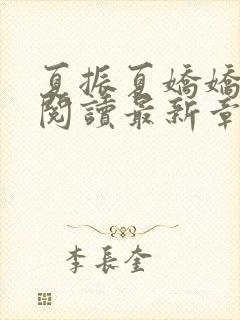 夏振夏嬌嬌
閱讀最新章
李長奎